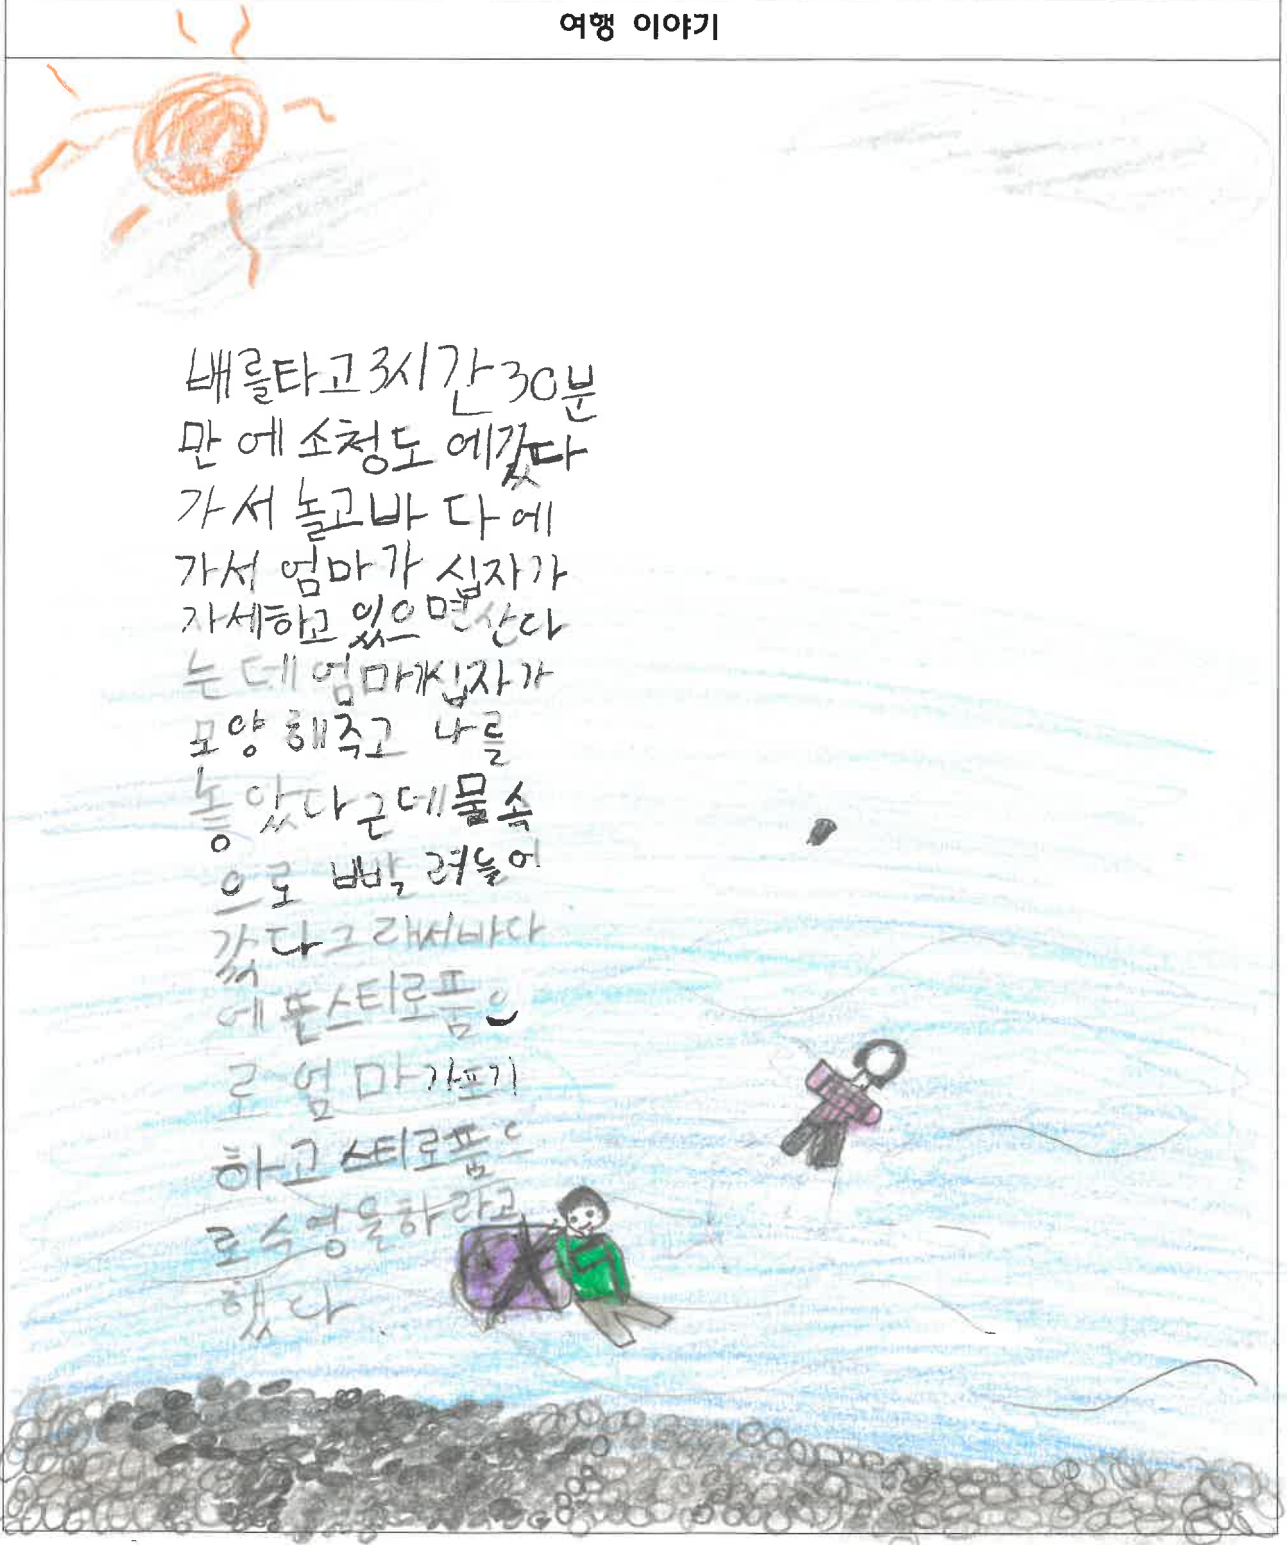 여행 이야기
배를타고3시간30분
만에소청도에갔다
가서 놀고바다에
가서 엄마가 십자가
자세하고있으면산다
는데엄마가십자가
모양해주고 나를
놓았다근데물속
으로 빨려들어
갔다그래서바다
에뜬스티로폼으
로 엄마가포기
하고스티로폼으
로수영을하라고
했다